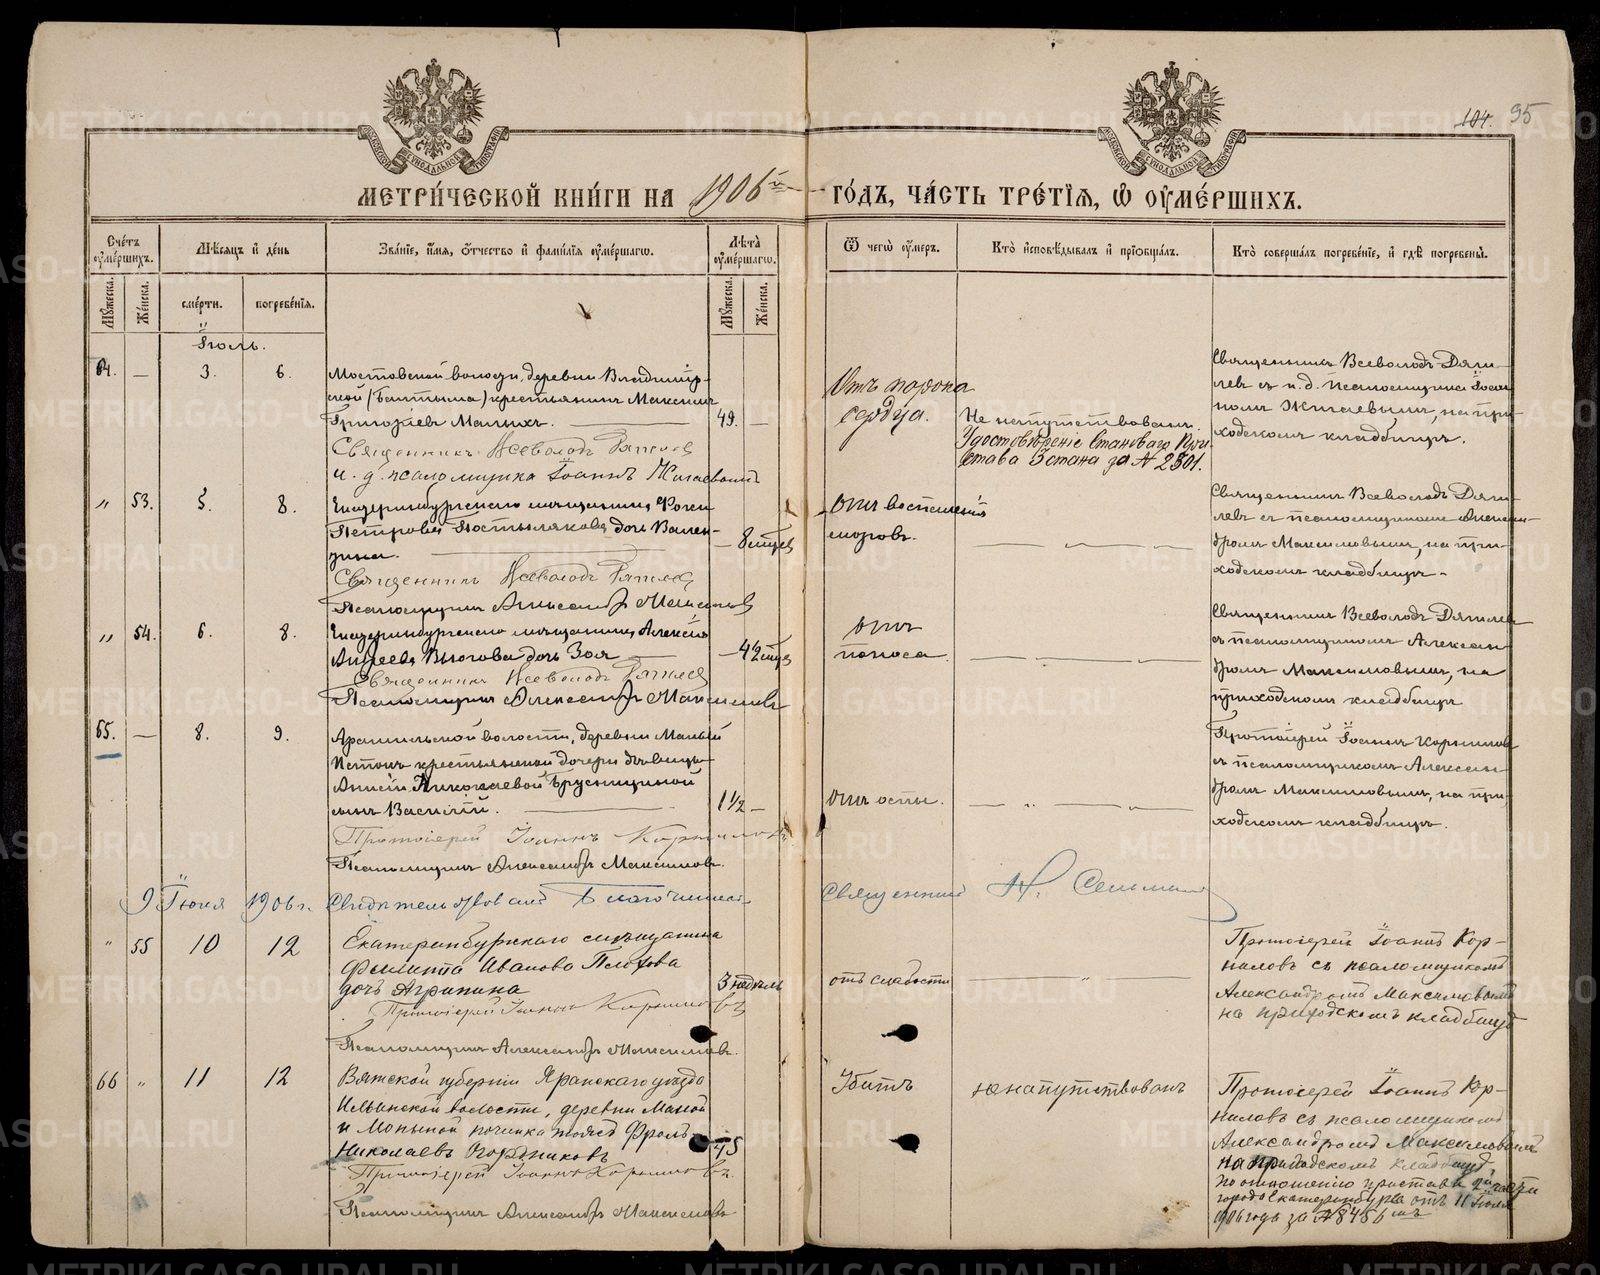 104. 95
МЕТРИ́ЧЕСКОЙ КНИ́ГИ НА 1906 й ГО́ДЪ, ЧА́СТЬ ТРЕ́ТІѦ, Ѡ ОУ҆МЕ́РШИХЪ.
Сче́тъ оумершихъ.
Мѣсяцъ и день
Зва́ніе, и́мя, о́тчество и фами́лія оуме́ршагѡ.
Лѣта оуме́ршагѡ.
Ѿ чегѡ оу́меръ.
Кто̀ исповѣ́дывалъ и пріѡбща́лъ.
Кто̀ соверша́лъ погребе́ніе, и гдѣ̀ погребены̀.
Мꙋжеска.
Же́нска.
сме́рти.
погребе́нія.
Мꙋжеска.
Же́нска.
Іюль.
64. — 3. 6.
Мостовской волости, деревни Владимір-
ской (Балтыма) крестьянинъ Максимъ
Григоріевъ Малыхъ. 49. —
Священникъ Всеволодъ Дягилевъ
и. д. псаломщика Іоаннъ Жигаевъ
Отъ порока
сердца.
Не напутствованъ.
Удостовѣреніе Становаго При-
става 3 стана за № 2501.
Священникъ Всеволодъ Дяги-
левъ съ и. д. псаломщика Іоан-
номъ Жигаевымъ, на при-
ходскомъ кладбищѣ.
„ 53. 5. 8.
Екатеринбургскаго мѣщанина Фоки
Петрова Постылякова дочь Вален-
тина. — 8 мцев
Священникъ Всеволодъ Дягилевъ
Псаломщикъ Александръ Максимовъ
отъ воспаленія
мозговъ.
Священникъ Всеволодъ Дяги-
левъ съ псаломщикомъ Алексан-
дромъ Максимовымъ, на при-
ходскомъ кладбищѣ.
„ 54. 6. 8.
Екатеринбургскаго мѣщанина Алексѣя
Андреева Вьюгова дочь Зоя — 4½ мцев
Священникъ Всеволодъ Дягилевъ
Псаломщикъ Александръ Максимовъ
отъ
поноса.
Священникъ Всеволодъ Дягилевъ
съ псаломщикомъ Алексан-
дромъ Максимовымъ, на
приходскомъ кладбищѣ
65. — 8. 9.
Арамильской волости, деревни Малый
Истокъ крестьянской дочери дѣвицы
Анисіи Николаевой Брусницыной
сынъ Василій. 1½ —
Протоіерей Іоаннъ Корниловъ
Псаломщикъ Александръ Максимовъ.
отъ оспы.
Протоіерей Іоаннъ Корниловъ
съ псаломщикомъ Алексан-
дромъ Максимовымъ, на при-
ходскомъ кладбищѣ.
9 Іюля 1906 г. Свидѣтельствовалъ Благочинный Священникъ
„ 55 10 12
Екатеринбургскаго мѣщанина
Филиппа Иванова Плохова
дочь Агрипина 3 недѣль
Протоіерей Іоаннъ Корниловъ
Псаломщикъ Александръ Максимовъ.
отъ слабости
Протоіерей Іоаннъ Кор-
ниловъ съ псаломщикомъ
Александромъ Максимовымъ
на приходскомъ кладбищѣ
66 „ 11 12
Вятской губерніи Яранскаго уѣзда
Ильинской волости, деревни Малой
Николаевъ Огородниковъ 45
Протоіерей Іоаннъ Корниловъ.
Псаломщикъ Александръ Максимовъ
Убитъ
ненапутствованъ
Протоіерей Іоаннъ Кор-
ниловъ съ псаломщикомъ
Александромъ Максимовымъ
на приходскомъ кладбищѣ
по отношенію пристава 2й части
города Екатеринбурга отъ 11 Іюля
1906 года за № 8456
METRIKI.GASO-URAL.RU